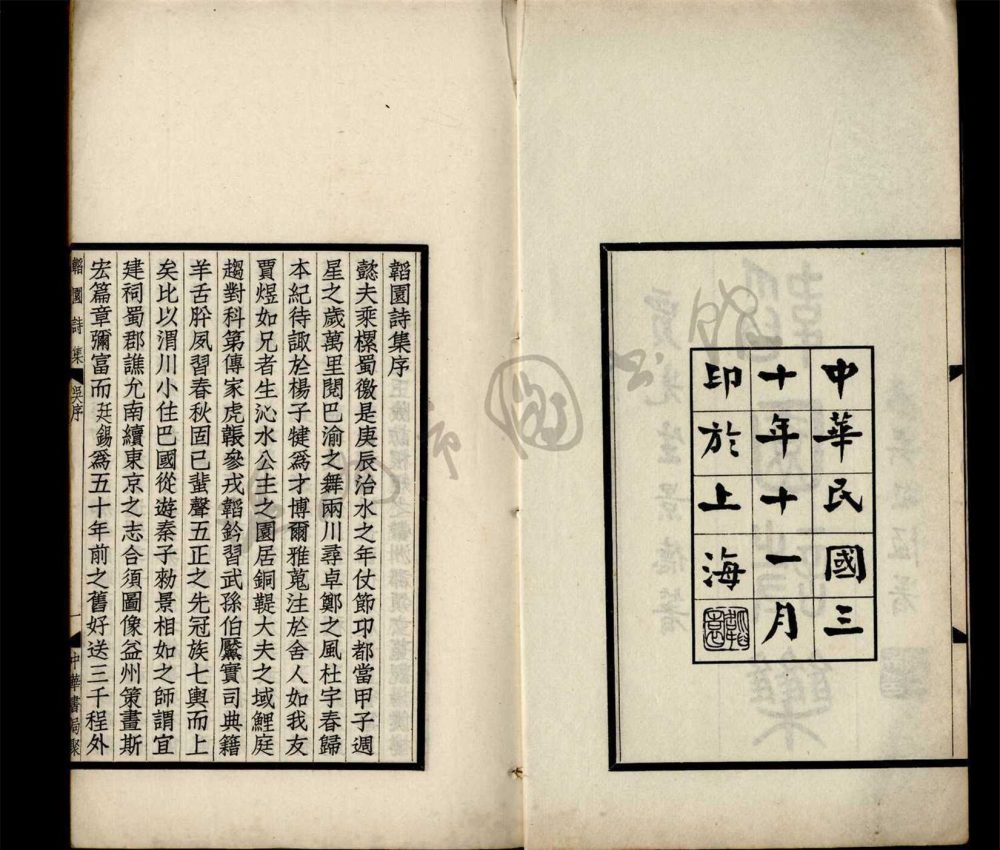 中華民國三
十年十一月
印於上海
韜園詩集序
懿夫乘樏蜀徼是庚辰治水之年仗節邛都當甲子週
星之歲萬里閱巴渝之舞兩川尋卓鄭之風杜宇春歸
本紀待諏於楊子犍爲才博爾雅蒐注於舍人如我友
賈煜如兄者生沁水公主之園居銅鞮大夫之域鯉庭
趨對科第傳家虎韔參戎韜鈐習武孫伯黶實司典籍
羊舌肸夙習春秋固已蜚聲五正之先冠族七輿而上
矣比以渭川小住巴國從遊秦子勑景相如之師謂宜
建祠蜀郡譙允南續東京之志合須圖像益州策畫斯
宏篇章彌富而廷錫爲五十年前之舊好送三千程外
韜園詩集 吳序 一 中華書局聚